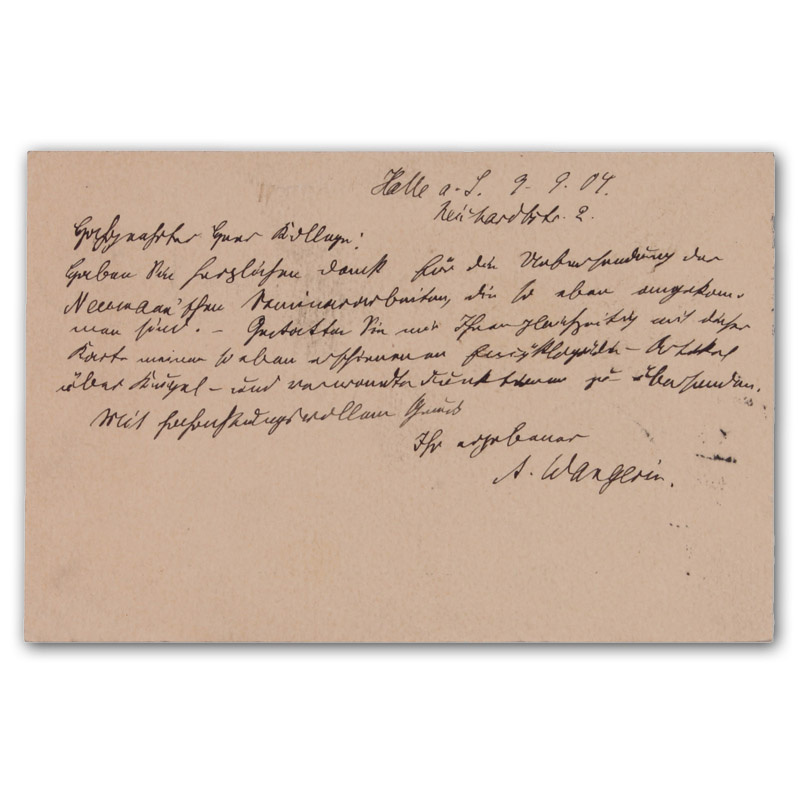 Halle a. S. 9. 9. 04.
Reichardtstr. 2.
Hochgeehrter Herr Kollege!
Haben Sie herzlichen Dank für die Uebersendung der
Neumann'schen Seminararbeiten, die so eben angekom-
men sind. – Gestatten Sie mir Ihnen gleichzeitig mit dieser
Karte meinen soeben erschienenen Encyklopädie-Artikel
über Kugel- und verwandte Funktionen zu übersenden.
Mit hochachtungsvollem Gruss
Ihr ergebener
A. Wangerin.